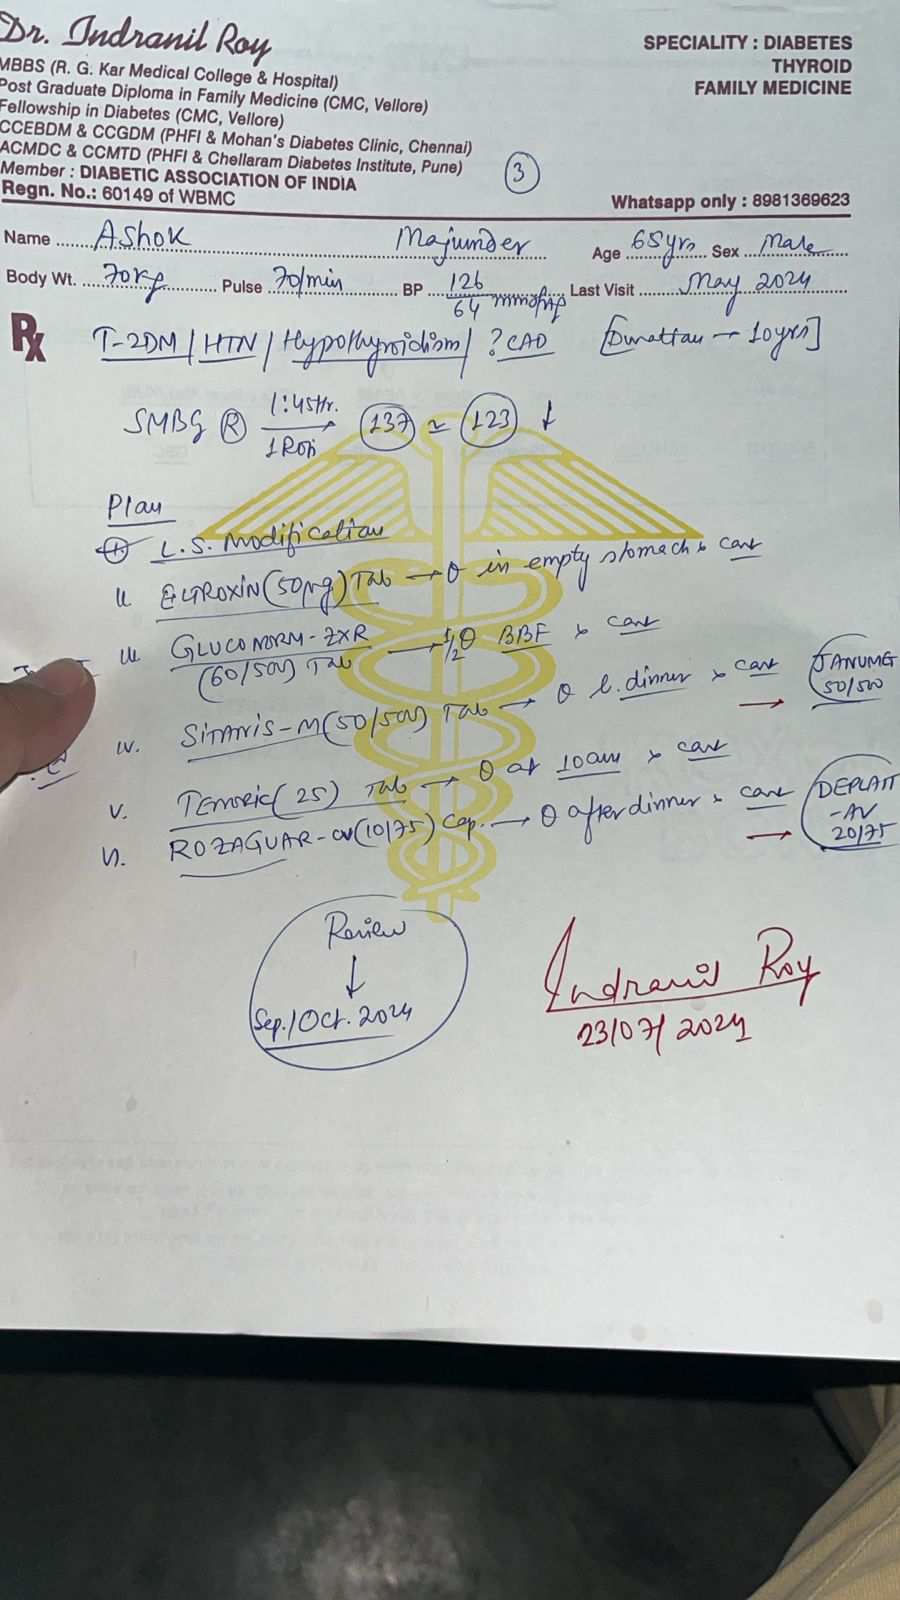 Dr. Indranil Roy
MBBS (R. G. Kar Medical College & Hospital)
Post Graduate Diploma in Family Medicine (CMC, Vellore)
Fellowship in Diabetes (CMC, Vellore)
CCEBDM & CCGDM (PHFI & Mohan's Diabetes Clinic, Chennai)
ACMDC & CCMTD (PHFI & Chellaram Diabetes Institute, Pune)
Member : DIABETIC ASSOCIATION OF INDIA
Regn. No.: 60149 of WBMC
SPECIALITY : DIABETES
THYROID
FAMILY MEDICINE
3
Whatsapp only : 8981369623
Name Ashok Majumder Age 65yrs Sex Male
Body Wt. 70kg Pulse 70/min BP 126/64 mmofHg Last Visit May 2024
Rx
T-2DM / HTN / Hypothyroidism / ? CAD [Duration → 10yrs]
SMBG R 1:45hr. → 137 ≈ 123 ↓
1 Roti
Plan
L.S. Modification
ELTROXIN (50µg) Tab → in empty stomach x cont
GLUCONORM-ZXR → 1/2 BBF x cont
(60/500) Tab
iv. SITARIS-M (50/500) Tab → dinner x cont → JANUMET 50/500
v. Tab → at 10am x cont
vi. (10/75) Cap. → after dinner x cont → DEPLATT
-AV
20/75
Review
↓
Sep./Oct. 2024
Indranil Roy
23/07/2024